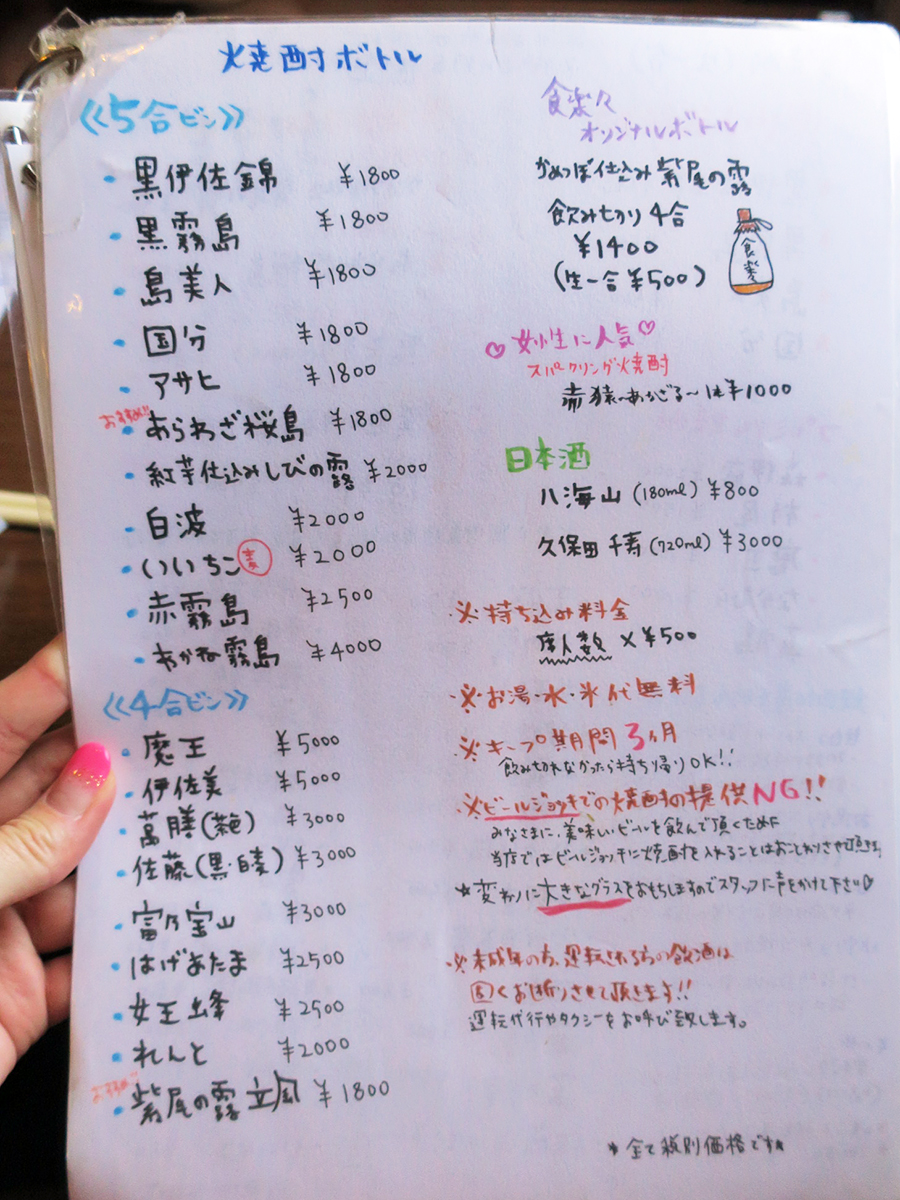 焼酎ボトル
《5合ビン》
・黒伊佐錦 ¥1800
・黒霧島 ¥1800
・島美人 ¥1800
・国分 ¥1800
・アサヒ ¥1800
おすすめ!!
・あらわざ桜島 ¥1800
・紅芋仕込みしびの露 ¥2000
・白波 ¥2000
・いいちこ 麦 ¥2000
・赤霧島 ¥2500
・あかね霧島 ¥4000
《4合ビン》
・魔王 ¥5000
・伊佐美 ¥5000
・萬膳(茜) ¥3000
・佐藤(黒・白) ¥3000
・富乃宝山 ¥3000
・はげあたま ¥2500
・女王蜂 ¥2500
・れんと ¥2000
おすすめ!!
・紫尾の露 立風 ¥1800
食楽々
オリジナルボトル
かめつぼ仕込み 紫尾の露
飲みきり 4合
¥1400
(生一合 ¥500)
食楽
♡女性に人気♡
スパークリング焼酎
赤猿〜あかざる〜 1本¥1000
日本酒
八海山 (180ml) ¥800
久保田 千寿 (720ml) ¥3000
・※持ち込み料金
席人数 × ¥500
・※お湯・水・氷代無料
・※キープ期間 3ヶ月
飲みきれなかったら持ち帰りOK!!
・※ビールジョッキでの焼酎の提供NG!!
みなさまに、美味しいビールを飲んで頂くため
当店ではビールジョッキに焼酎を入れることはおことわりさせて頂きます。
★変わりに大きなグラスをおもちしますのでスタッフに声をかけて下さい♡
・※未成年の方、運転される方の飲酒は
固くお断りさせて頂きます!!
運転代行やタクシーをお呼び致します。
★全て税別価格です★